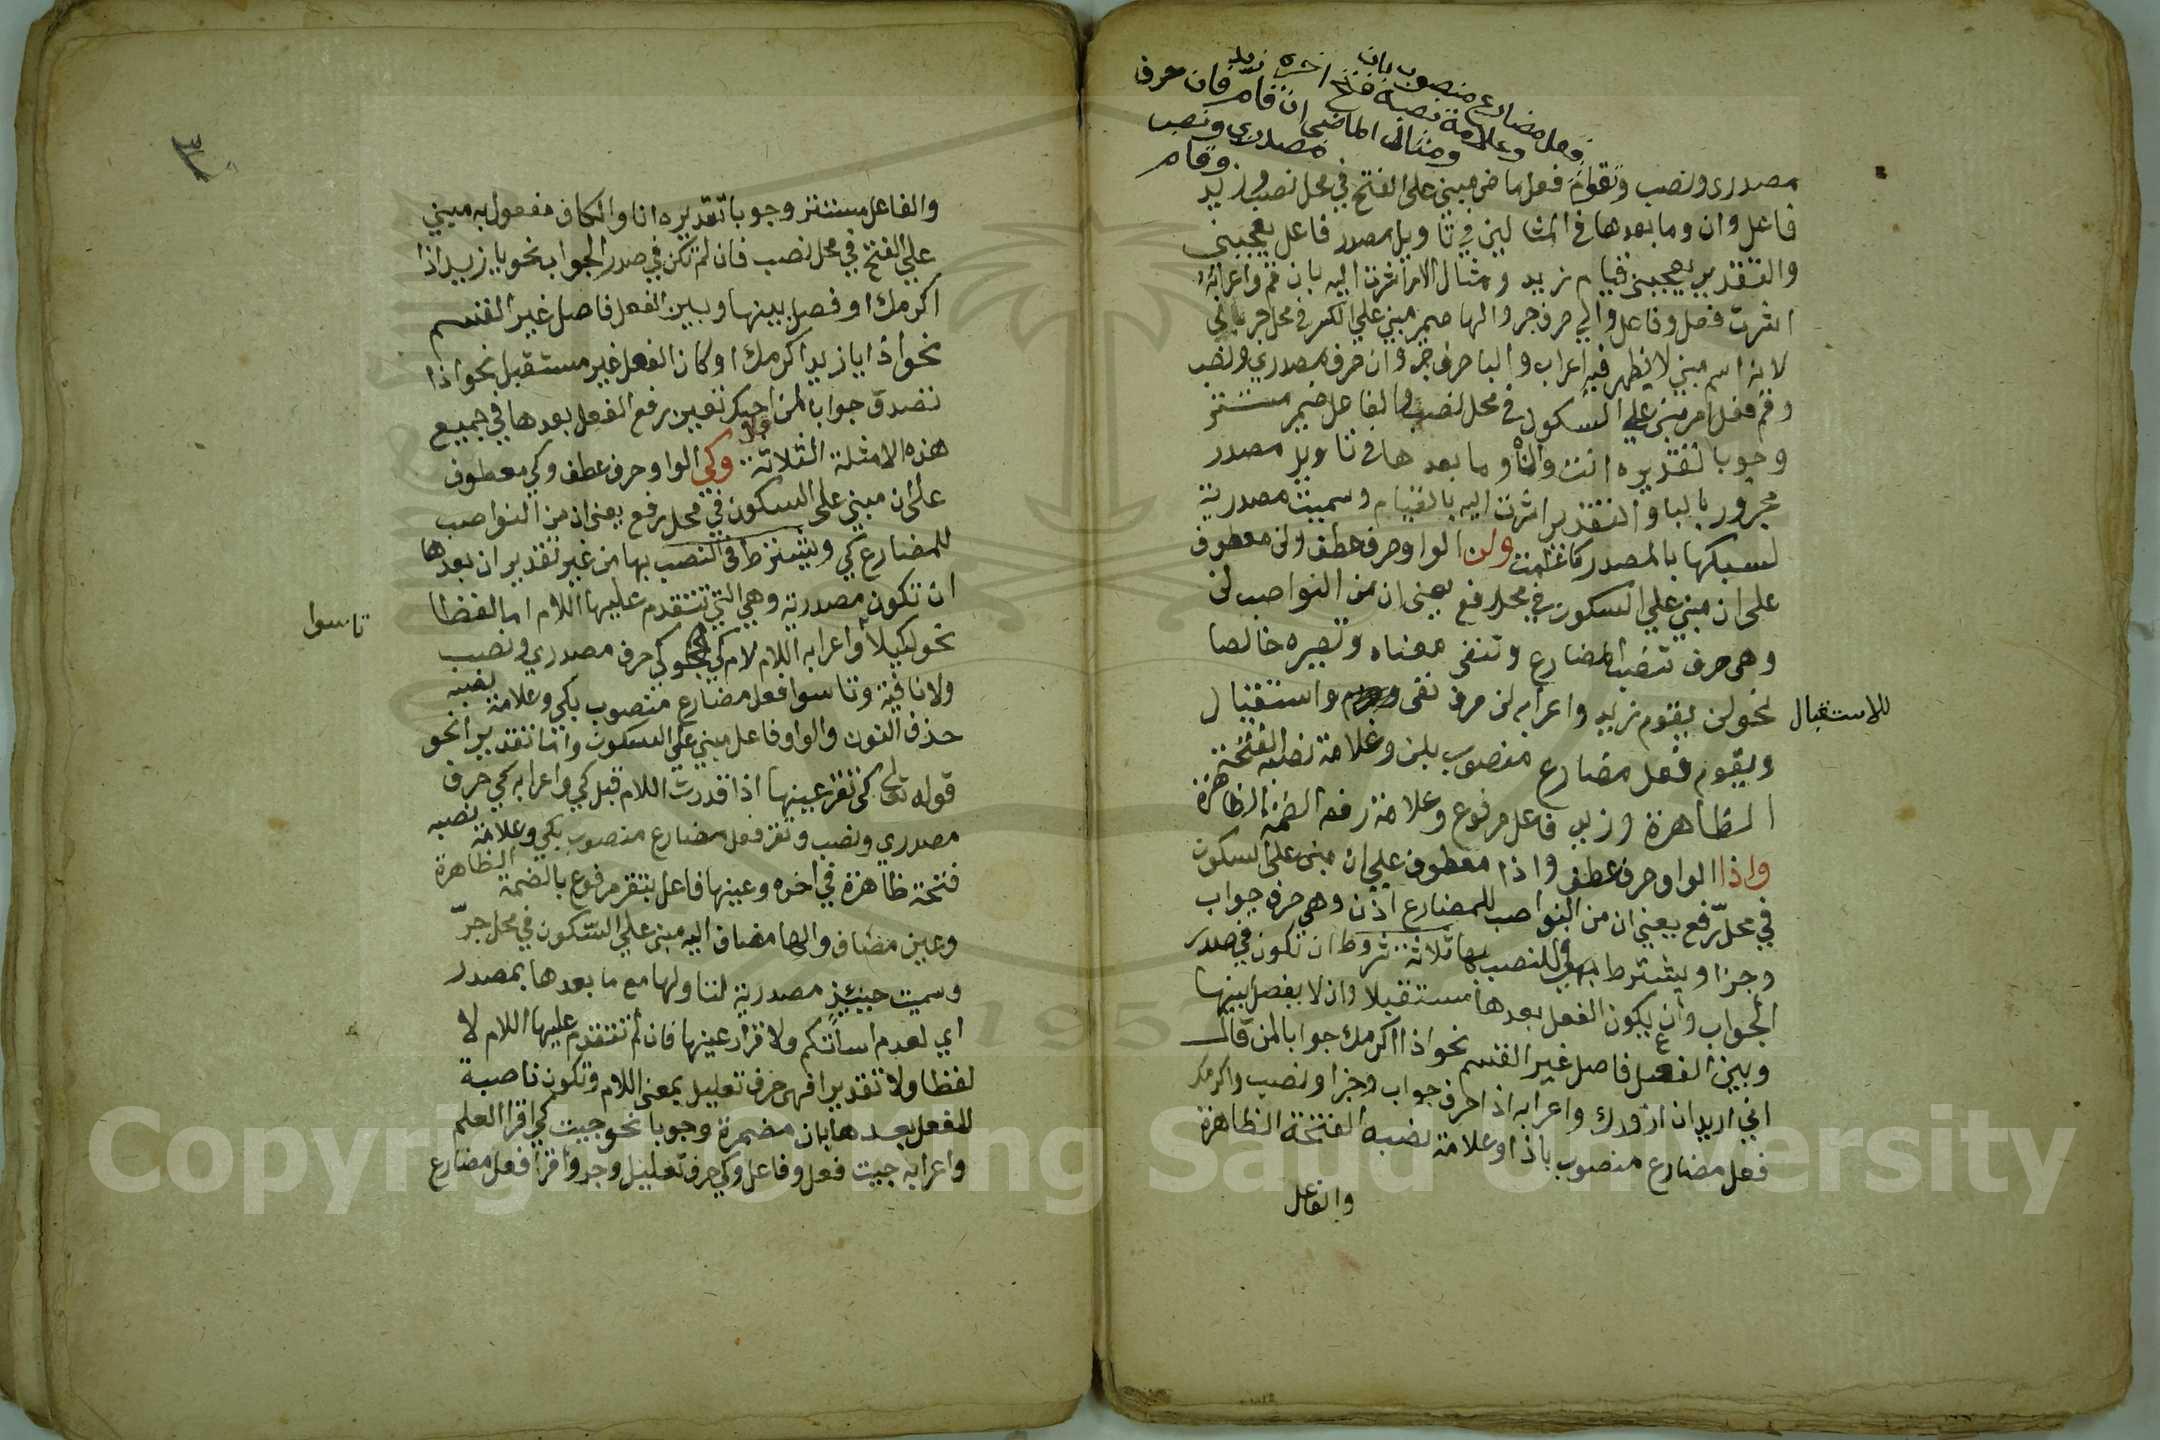 فعل مضارع منصوب بان
وعلامة نصبه فتح اخره زيد
ومثال الماضي ان قام فان حرف
مصدري ونصب
وقام
مصدرى ونصب وتقوام فعل ماض مبنى على الفتح في محل نصب وزيد
فاعل وان وما بعدها فى المثالين في تاويل مصدر فاعل يعجبنى
والتقدير يعجبنى قيام زيد ومثال الامر اشرت اليه بان قم واعرابه
اشرت فعل وفاعل والي حرف جر والها ضمير مبني علي الكسر في محل جر بالي
لانه اسم مبني لا يظهر فيه اعراب والبا حرف جر وان حرف مصدري ونصب
وقم فعل امر مبني علي السكون في محل نصب والفاعل ضمير مستتر
وجوبا تقديره انت وان وما بعدها فى تاويل مصدر
مجرور بالبا والتقدير اشرت اليه بالقيام وسميت مصدرية
لسبكها بالمصدر كما علمت ولن الواو حرف عطف ولن معطوف
على ان مبني علي السكون في محل رفع يعنى ان من النواصب لن
وهى حرف تنصب المضارع وتنفى معناه وتصيره خالصا
للاستقبال
نحو لن يقوم زيد واعرابه لن حرف نفى واستقبال
ويقوم فعل مضارع منصوب بلن وعلامة نصبه الفتحة
الظاهرة وزيد فاعل مرفوع وعلامة رفعه الضمة الظاهرة
واذا الواو حرف عطف واذا معطوف علي ان مبنى على السكون
في محل رفع يعني ان من النواصب للمضارع اذن وهي حرف جواب
وجزا ويشترط للنصب بها ثلاثة شروط ان تكون في صدر
الجواب وان يكون الفعل بعدها مستقبلا وان لا يفصل بينها
وبين الفعل فاصل غير القسم نحو اذا اكرمك جوابا لمن قال
اني اريد ان ازورك واعرابه اذا حرف جواب وجزا ونصب واكرمك
فعل مضارع منصوب باذا وعلامة نصبه الفتحة الظاهرة
والفاعل
٣
والفاعل مستتر وجوبا تقديره انا والكاف مفعول به مبني
علي الفتح في محل نصب فان لم تكن في صدر الجواب نحو يا زيد اذا
اكرمك او فصل بينها وبين الفعل فاصل غير القسم
نحو اذا يا زيد اكرمك او كان الفعل غير مستقبل نحو اذا
تصدق جوابا لمن تعين رفع الفعل بعدها في جميع
هذه الامثلة الثلاثة وكي الواو حرف عطف وكي معطوف
على ان مبني على السكون في محل رفع يعنى ان من النواصب
للمضارع كي ويشترط فى النصب بها من غير تقدير ان بعدها
ان تكون مصدرية وهي التي تتقدم عليها اللام اما لفظا
تاسوا
نحو لكيلا واعرابه اللام لام كي وكي حرف مصدري ونصب
ولا نافية وتاسوا فعل مضارع منصوب بكي وعلامة نصبه
حذف النون والواو فاعل مبني علي السكون واما تقديرا نحو
قوله تعالى كى تقر عينها اذا قدرت اللام قبل كي واعرابه كي حرف
مصدري ونصب وتقر فعل مضارع منصوب بكي وعلامة نصبه
فتحة ظاهرة في اخره وعينها فاعل بتقر مرفوع بالضمة الظاهرة
وعين مضاف والها مضاف اليه مبنى علي السكون في محل جر
وسميت حينئذ مصدرية لتاولها مع ما بعدها بمصدر
اي لعدم اساتكم ولاقرار عينها فان لم تتقدم عليها اللام لا
لفظا ولا تقديرا فهى حرف تعليل بمعنى اللام وتكون ناصبة
للفعل بعدها بان مضمرة وجوبا نحو جيت كي اقرا العلم
واعرابه جيت فعل وفاعل وكي حرف تعليل وجر واقرا فعل مضارع
Copyright © King Saud University
1957